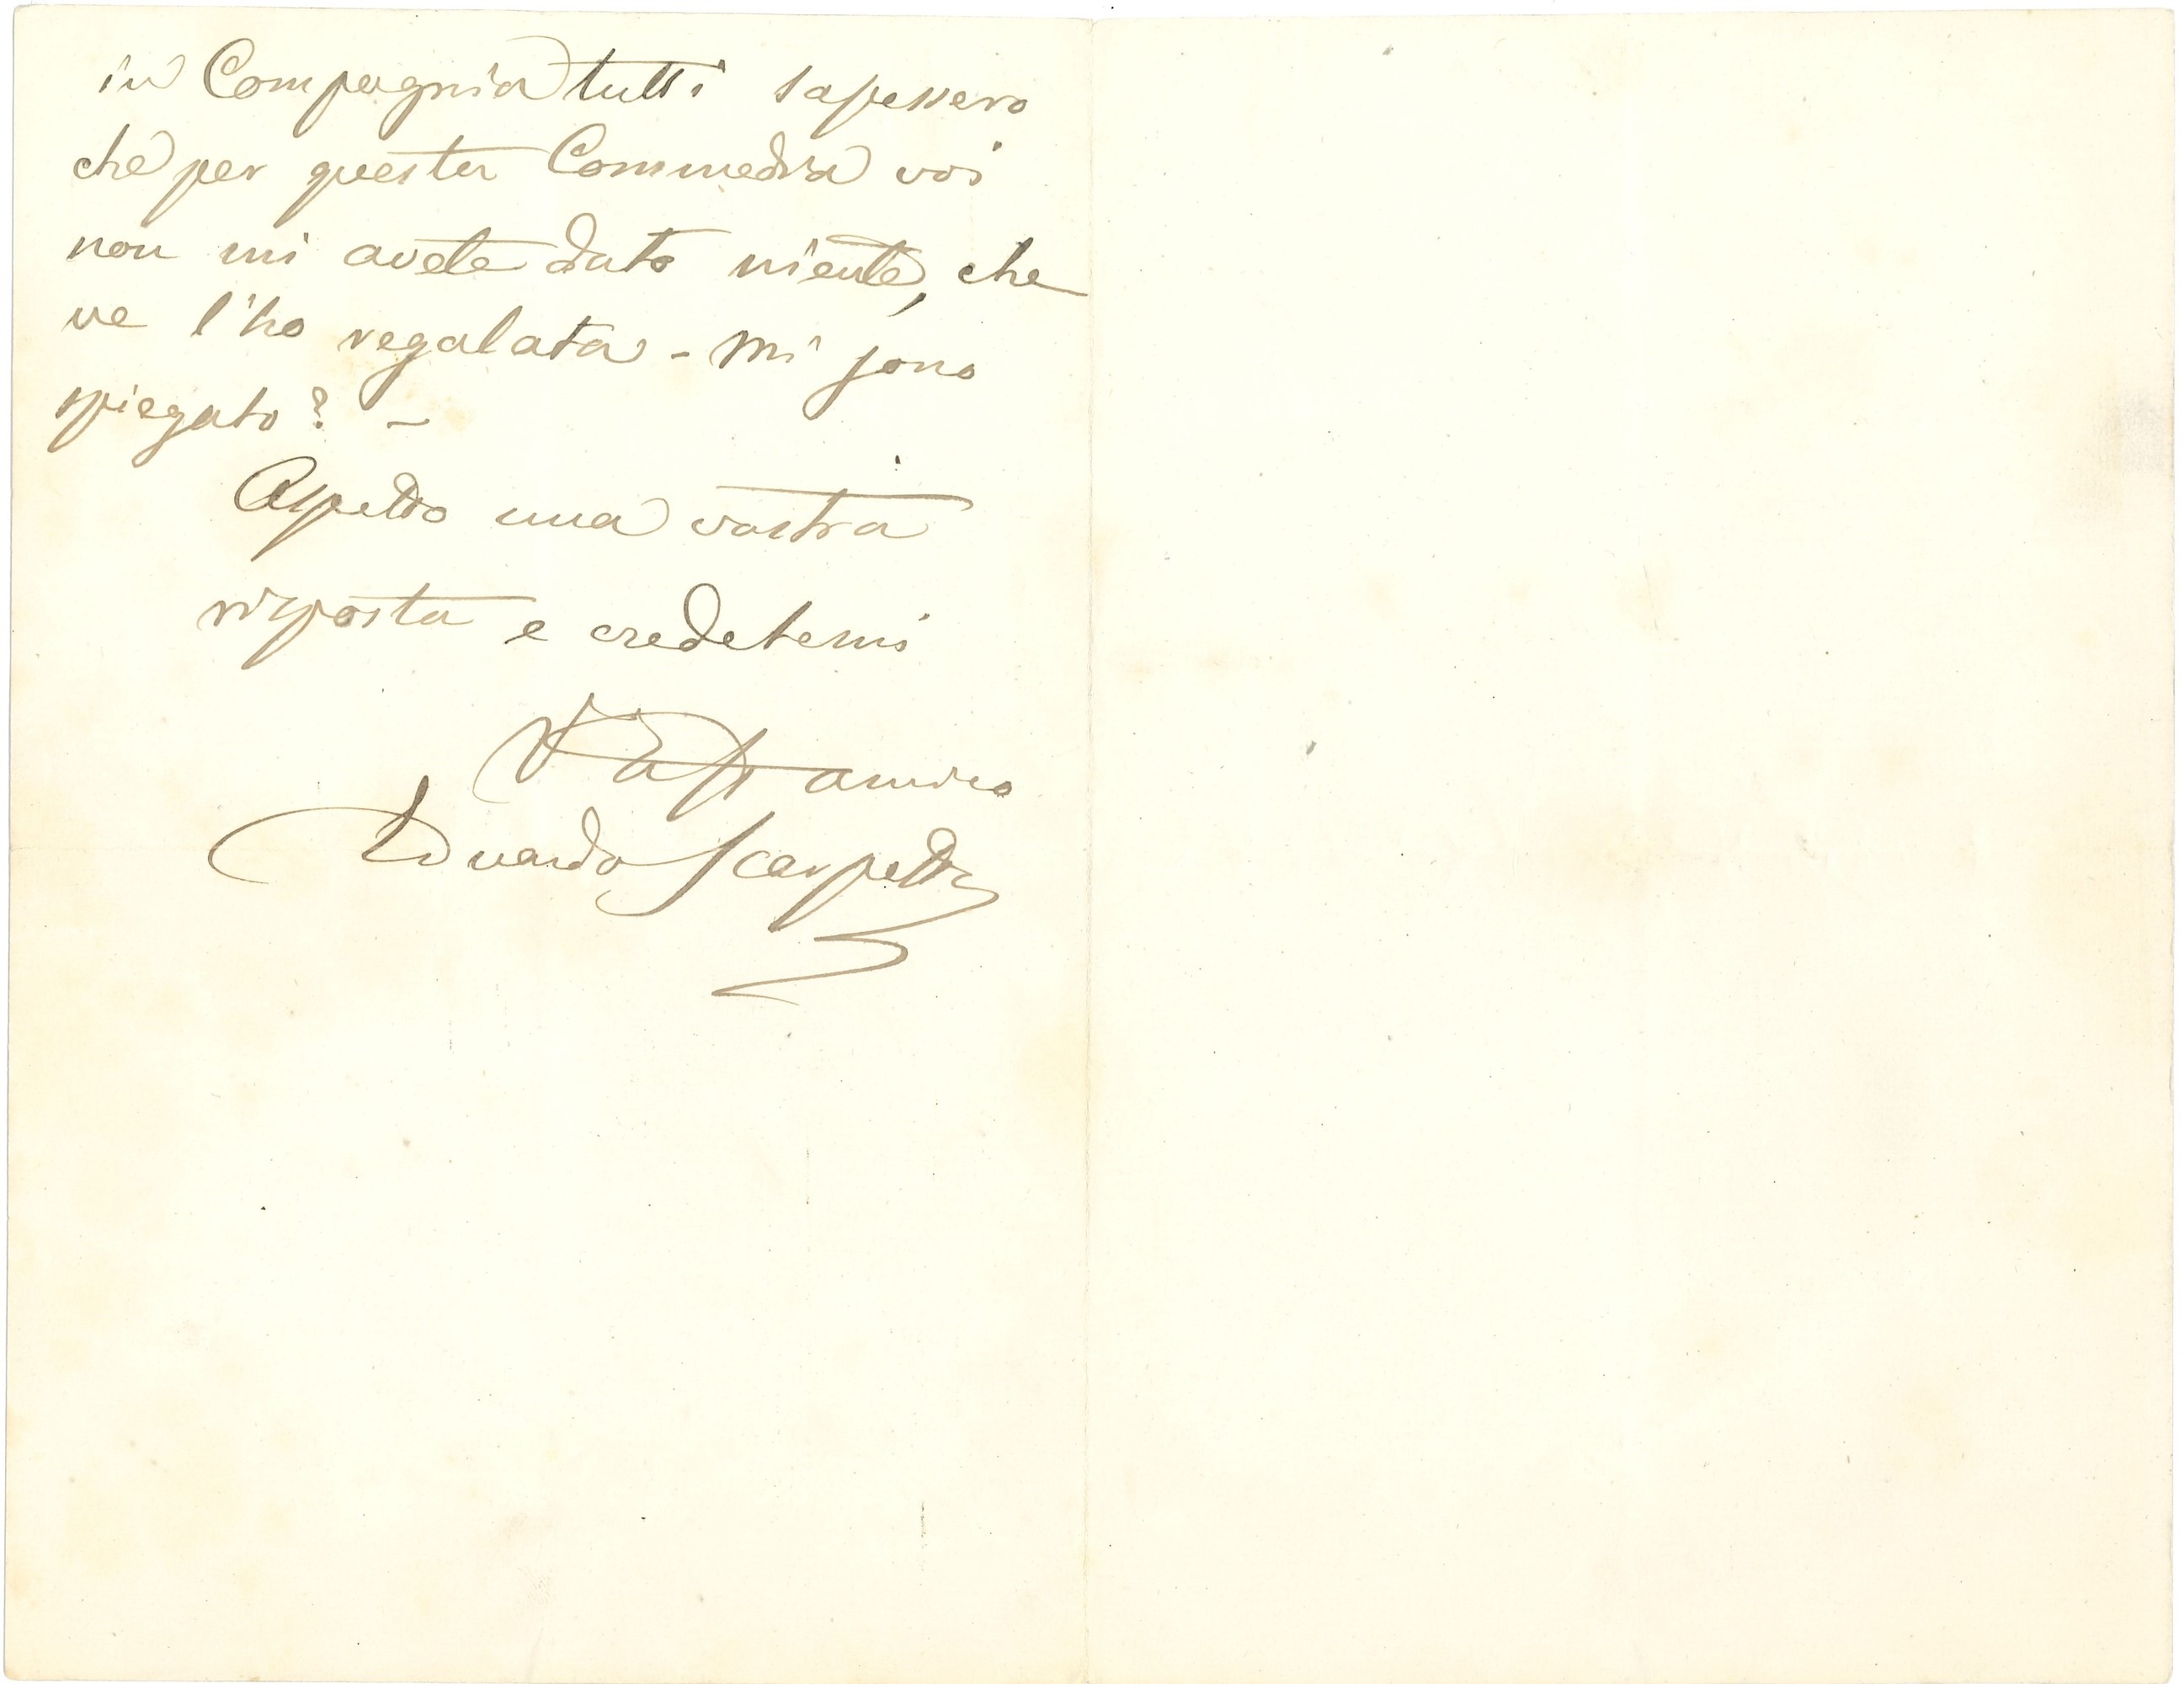 in Compagnia tutti sapessero
che per questa Commedia voi
non mi avete dato niente, che
ve l'ho regalata - Mi sono
spiegato? -
Aspetto una vostra
risposta e credetemi
amico
Eduardo Scarpetta